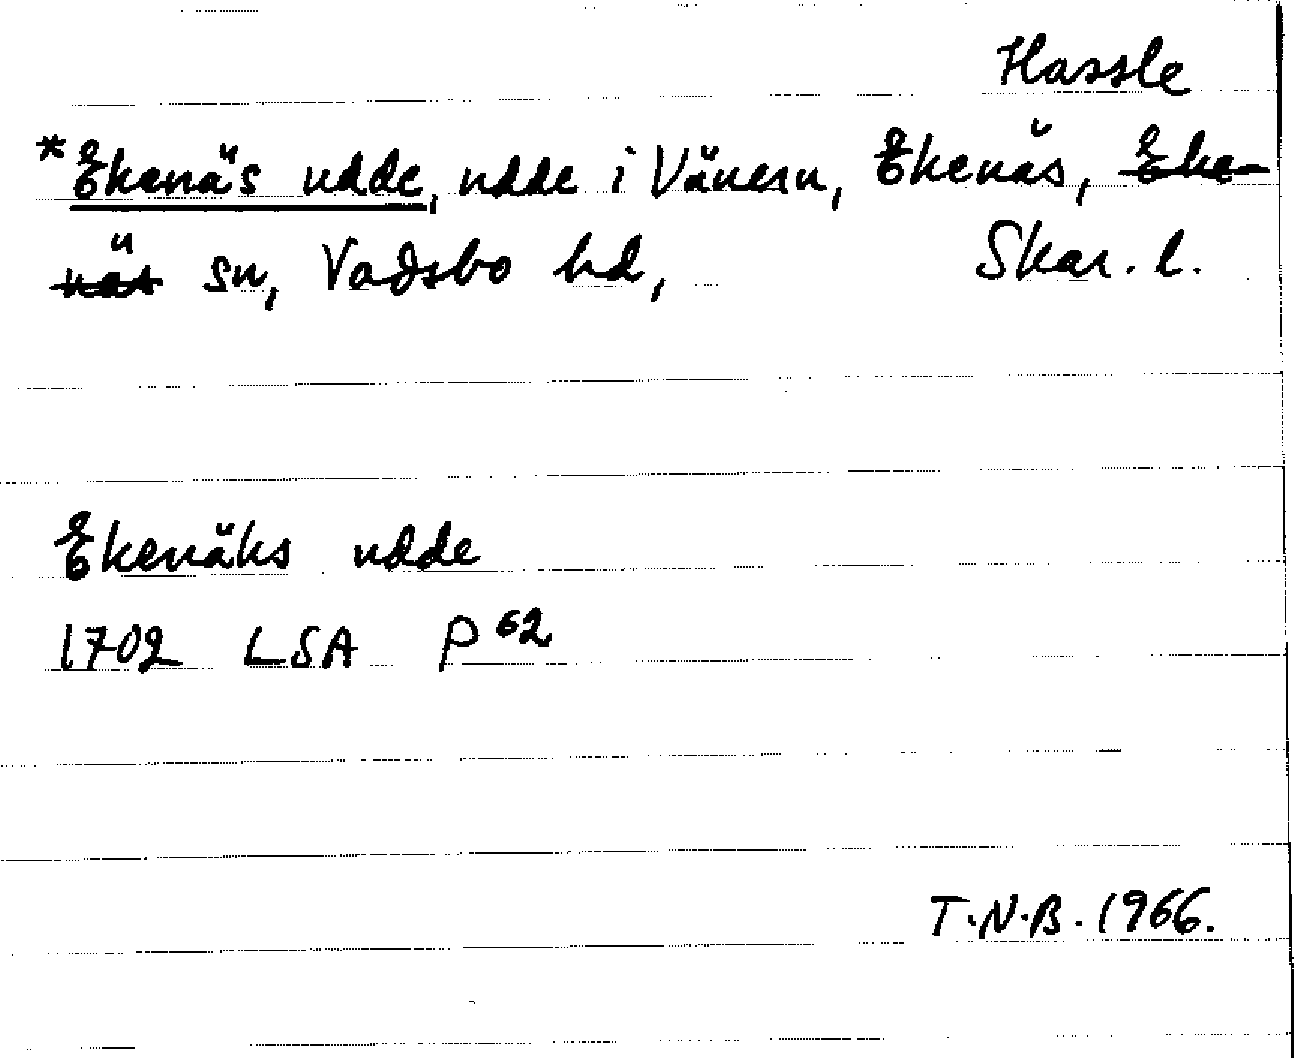 Hassle
*Ekenäs udde, udde i Vänern, Ekenäs, Eke-
näs sn, Vadsbo hd, Skar. l.
Ekenäks udde
1702 LSA P 62
T.N.B. 1966.